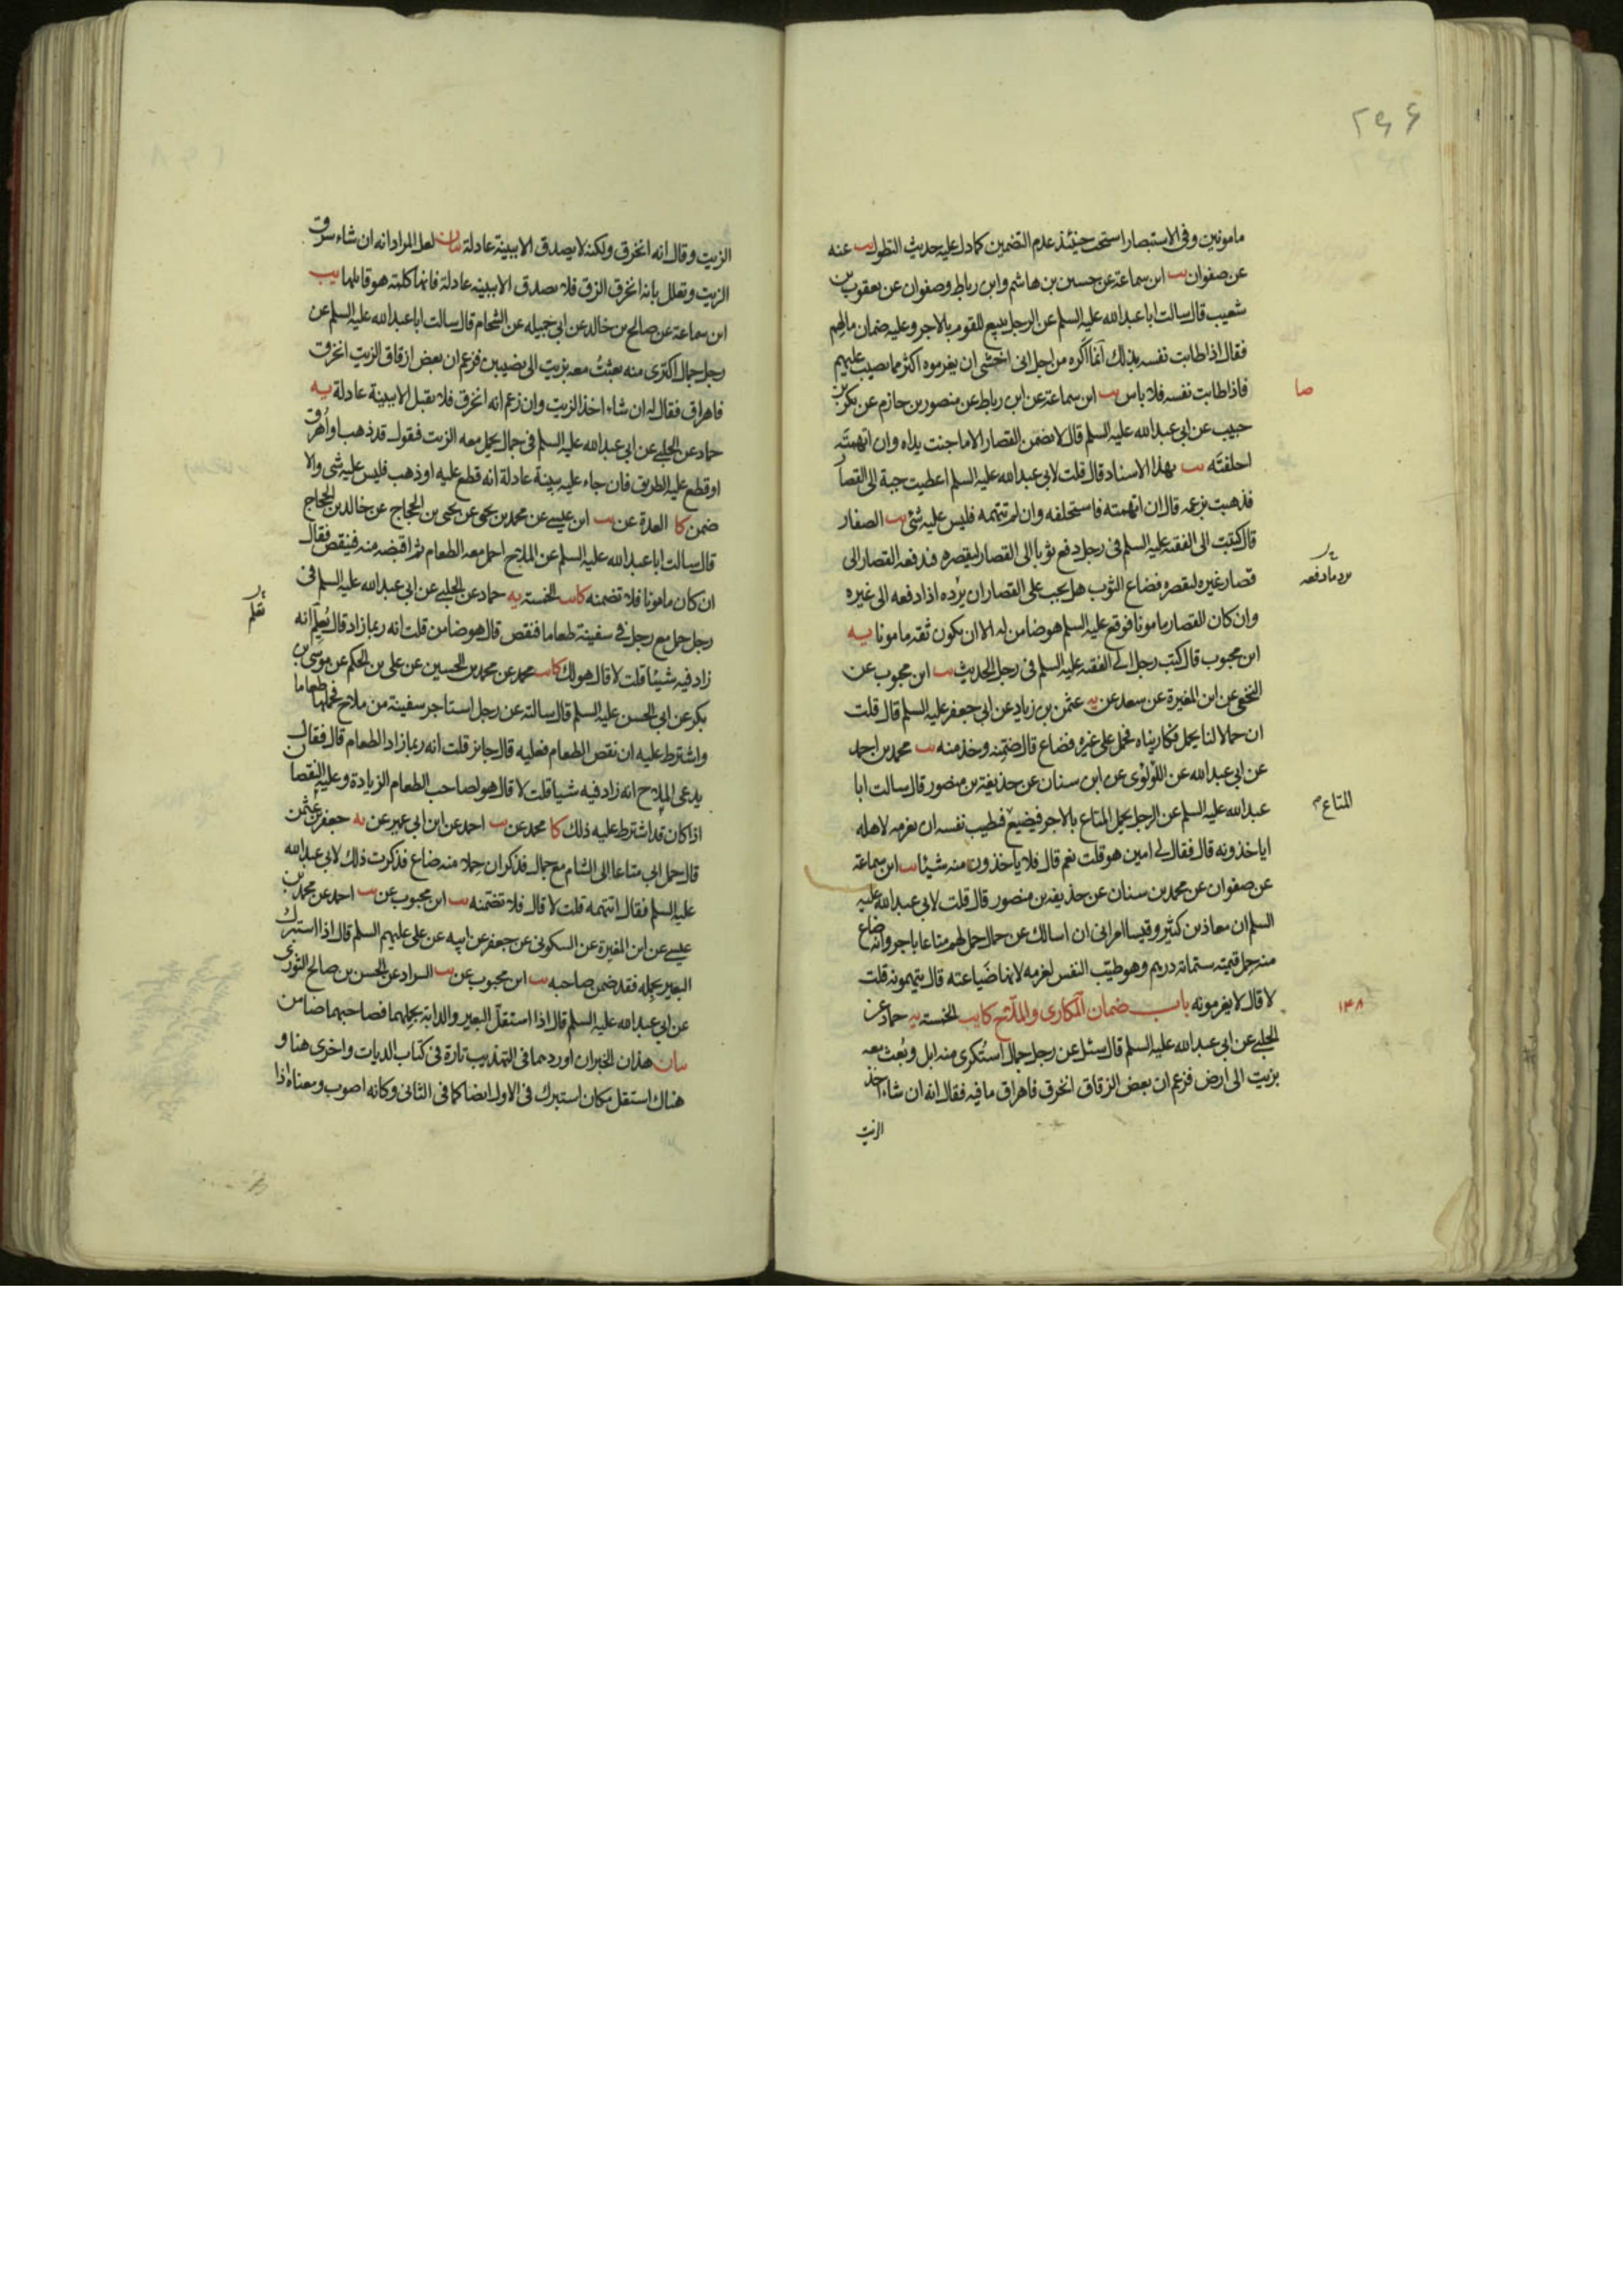 ۲۹۶
مامونين وفى الاستبصار استحب حينئذ عدم التضمين كما دل عليه حديث التطول يب عنه
عن صفوان يب ابن سماعة عن حسين بن هاشم وابن رباط وصفوان عن يعقوب بن
شعيب قال سالت ابا عبد الله عليه السلم عن الرجل يبيع للقوم بالاجر وعليه ضمان مالهم
فقال اذا طابت نفسه بذلك انما اكره من اجل انى اخشى ان يغرموه اكثر مما يصيب عليهم
فاذا طابت نفسه فلا باس يب ابن سماعة عن ابن رباط عن منصور بن حازم عن بكر بن
صا
حبيب عن ابى عبد الله عليه السلم قال لا يضمن القصار الا ما جنت يداه وان اتهمته
احلفته يب بهذا الاسناد قال قلت لابى عبد الله عليه السلم اعطيت جبة الى القصار
فذهبت بزعمه قال ان اتهمته فاستحلفه وان لم تتهمه فليس عليه شئ يب الصفار
قال كتبت الى الفقيه عليه السلم فى رجل دفع ثوبا الى القصار ليقصره فدفعه القصار الى
قصار غيره ليقصره فضاع الثوب هل يجب على القصار ان يرده اذا دفعه الى غيره
وان كان القصار مامونا فوقع عليه السلم هو ضامن له الا ان يكون ثقه مامونا يه
ابن محبوب قال كتب رجل الى الفقيه عليه السلم فى رجل الحديث يب ابن محبوب عن
النخعى عن ابن المغيرة عن سعد عن يه عثمن بن زياد عن ابى جعفر عليه السلم قال قلت
ان حمالا لنا يحمل فكاريناه فحمل على غيره فضاع قال ضمنه وخذ منه يب محمد بن احمد
عن ابى عبد الله عن اللؤلؤى عن ابن سنان عن حذيفة بن منصور قال سالت ابا
عبد الله عليه السلم عن الرجل يحمل المتاع بالاجر فيضيع فتطيب نفسه ان يغرمه لاهله
المتاع م
اياخذونه قال فقال لى امين هو قلت نعم قال فلا ياخذون منه شيئا يب ابن سماعة
عن صفوان عن محمد بن سنان عن حذيفة بن منصور قال قلت لابى عبد الله عليه
السلم ان معاذ بن كثير وقيسا امرانى ان اسالك عن حمال حمل لهم متاعا باجر وانه ضاع
منه حمل قيمته ستمائة درهم وهو طيب النفس لغرمه لانها ضياعته قال يتهمونه قلت
لا قال لا يغرمونه باب ضمان المكارى والملاح كا يب الخمسة يه حماد عن
۱۴۸
الحلبى عن ابى عبد الله عليه السلم قال سئل عن رجل جمال استكرى منه ابل وبعث معه
بزيت الى ارض فزعم ان بعض الزقاق انخرق فاهراق ما فيه فقال انه ان شاء اخذ
الزيت
الزيت وقال انه انخرق ولكنه لا يصدق الا ببينة عادلة بيان لعل المراد انه ان شاء سرق
الزيت وتعلل بانه انخرق الزق فلا يصدق الا ببينه عادلة فانها كلمة هو قائلها يب
ابن سماعة عن صالح بن خالد عن ابى جميله عن الشحام قال سالت ابا عبد الله عليه السلم عن
رجل جمال اكترى منه بعثت معه بزيت الى نصيبين فزعم ان بعض ازقاق الزيت انخرق
فاهراق فقال له ان شاء اخذ الزيت وان زعم انه انخرق فلا يقبل الا ببينة عادلة يه
حماد عن الحلبى عن ابى عبد الله عليه السلم فى جمال يحمل معه الزيت فيقول قد ذهب او اهرق
او قطع عليه الطريق فان جاء عليه ببينة عادلة انه قطع عليه او ذهب فليس عليه شى والا
ضمن كا العدة عن يب ابن عيسى عن محمد بن يحيى عن يحيى بن الحجاج عن خالد بن الحجاج
قال سالت ابا عبد الله عليه السلم عن الملاح احمل معه الطعام ثم اقبضه منه فينقص فقال
ان كان مامونا فلا تضمنه كا يب الخمسة يه حماد عن الحلبى عن ابى عبد الله عليه السلم فى
رجل حمل مع رجل فى سفينة طعاما فنقص قال هو ضامن قلت انه ربما زاد قال يعلم انه
زاد فيه شيئا قلت لا قال هو لك كا يب محمد عن محمد بن الحسين عن على بن الحكم عن موسى بن
بكر عن ابى الحسن عليه السلم قال سالته عن رجل استاجر سفينة من ملاح فحملها طعاما
واشترط عليه ان نقص الطعام فعليه قال جائز قلت انه ربما زاد الطعام قال فقال
يدعى الملاح انه زاد فيه شيا قلت لا قال هو لصاحب الطعام الزيادة وعليه النقصان
اذا كان قد اشترط عليه ذلك كا محمد عن يب احمد عن ابن ابى عمير عن يه جعفر بن عثمن
قال حمل ابى متاعا الى الشام مع جمال فذكر ان حملا منه ضاع فذكرت ذلك لابى عبد الله
عليه السلم فقال اتتهمه قلت لا قال فلا تضمنه يب ابن محبوب عن يب احمد عن محمد بن
عيسى عن ابن المغيرة عن السكونى عن جعفر عن ابيه عن على عليهم السلم قال اذا استبرك
البعير بحمله فقد ضمن صاحبه يب ابن محبوب عن يب السراد عن الحسن بن صالح الثورى
عن ابى عبد الله عليه السلم قال اذا استقل البعير والدابة بحملهما فصاحبهما ضامن
بيان هذان الخبران اوردهما فى التهذيب تارة فى كتاب الديات واخرى هنا و
هناك استقل مكان استبرك فى الاول ايضا كما فى الثانى وكانه اصوب ومعناه اذا